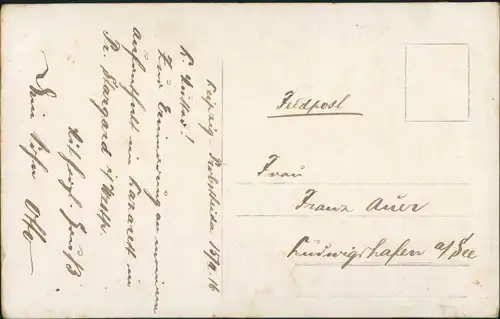 Leipzig - Probstheida 15/2.16
L. Mutter!
Zur Erinnerung an meinen
Aufenthalt im Lazarett in
Pr. Stargard i/Westpr.
Mit herzl. Gruß
Dein Sohn Otto
Feldpost
Frau
Franz Auer
Ludwigshafen a/See